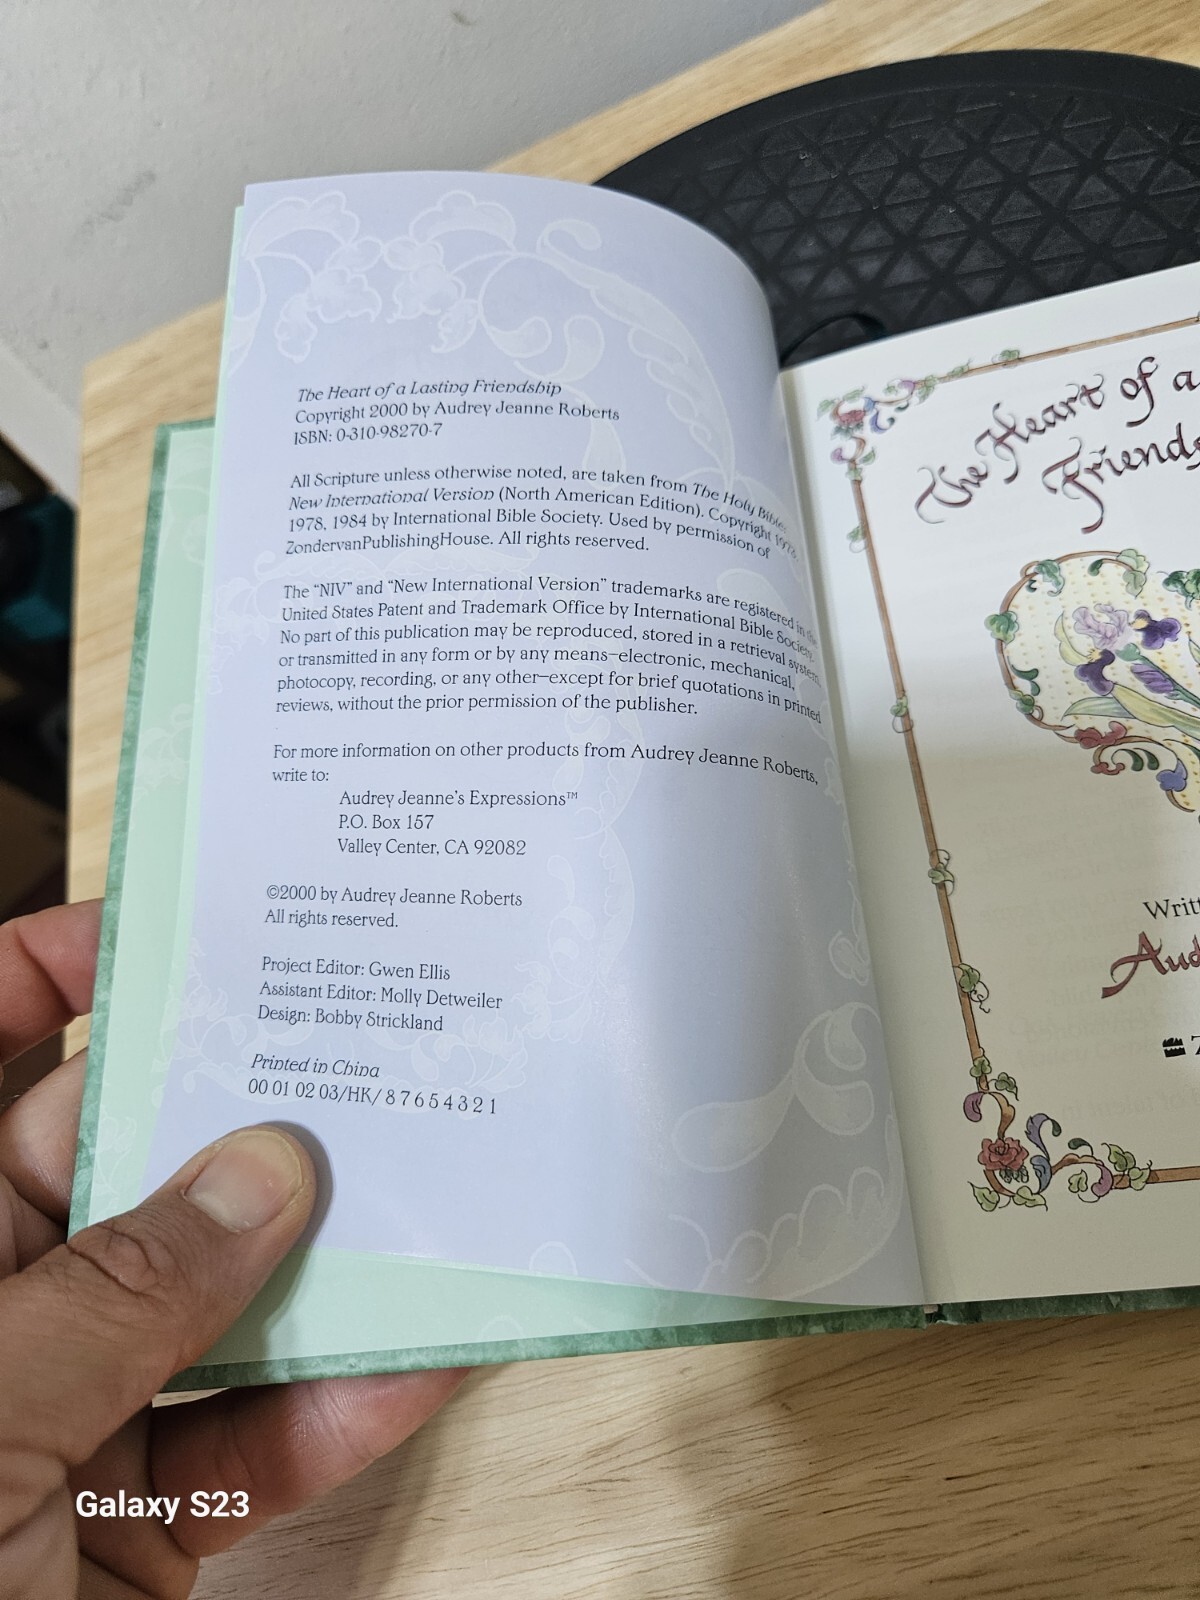 The Heart of a Lasting Friendship
Copyright 2000 by Audrey Jeanne Roberts
ISBN: 0-310-98270-7
All Scripture unless otherwise noted, are taken from The Holy Bible:
New International Version (North American Edition). Copyright 1973,
1978, 1984 by International Bible Society. Used by permission of
ZondervanPublishingHouse. All rights reserved.
The “NIV” and “New International Version” trademarks are registered in the
United States Patent and Trademark Office by International Bible Society.
No part of this publication may be reproduced, stored in a retrieval system,
or transmitted in any form or by any means–electronic, mechanical,
photocopy, recording, or any other–except for brief quotations in printed
reviews, without the prior permission of the publisher.
For more information on other products from Audrey Jeanne Roberts,
write to:
Audrey Jeanne's Expressions™
P.O. Box 157
Valley Center, CA 92082
©2000 by Audrey Jeanne Roberts
All rights reserved.
Project Editor: Gwen Ellis
Assistant Editor: Molly Detweiler
Design: Bobby Strickland
Printed in China
00 01 02 03/HK/ 8 7 6 5 4 3 2 1
The Heart of a
Friends
Writt
Aud
Galaxy S23